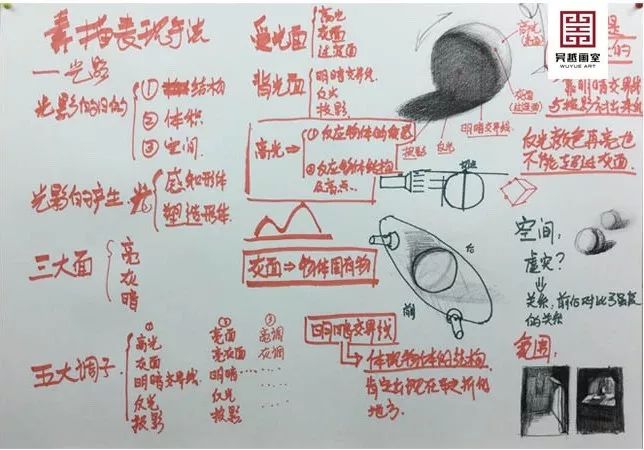 素描表现手法
一光影
光影的目的
① 结构
② 体积
③ 空间
光影的产生
光
感知形体
塑造形体
三大面
亮
灰
暗
五大调子
①
高光
灰面
明暗交界线
反光
投影
②
亮面
亮灰面
明暗
反光
投影
③
亮调
灰调
受光面
高光
灰面
过渡面
背光面
明暗交界线
反光
投影
高光
①反应物体的角色
②反应物体结构
及高点
灰面⇒物体固有物
明暗交界线
体现物体的结构
地方
高光
灰面
明暗交界线
反光
投影
后
前
昊越画室
WUYUE ART
是
的
靠明暗交界线
与投影衬出来
反光颜色再亮也
不能超过灰面
空间
虚实?
关系,前后对比了强弱
的关系
范围: